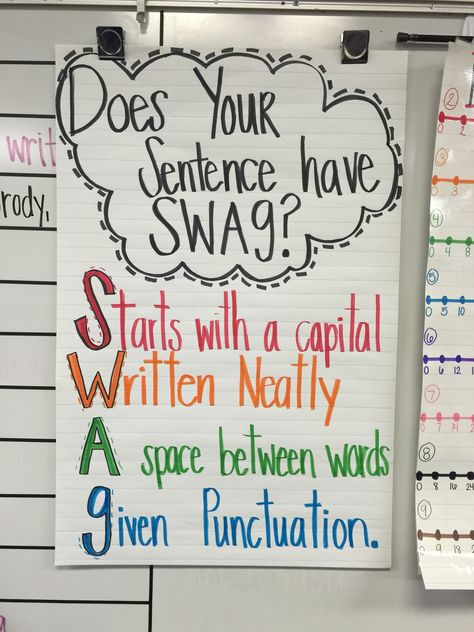 Does Your
Sentence have
SWAg?
Starts with a capital
Written Neatly
A space between words
given Punctuation.
writ
rody,
2
0 2
3
0 3
4
0 4 8
5
0 5 10
6
0 6 12
7
0 7 14
8
0 8 16 24
9
0 9 18